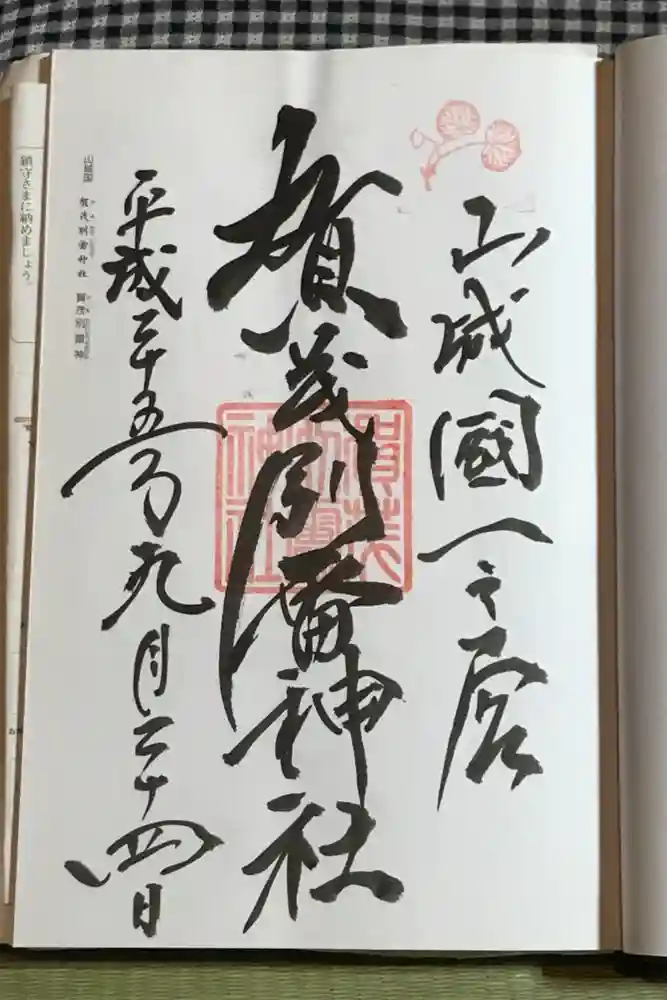 山城國一之宮
賀茂別雷神社
平成二十五年九月二十四日
賀茂別雷神社
山城国 賀茂別雷神社 賀茂別雷神
鎮守さまに納めましょう。